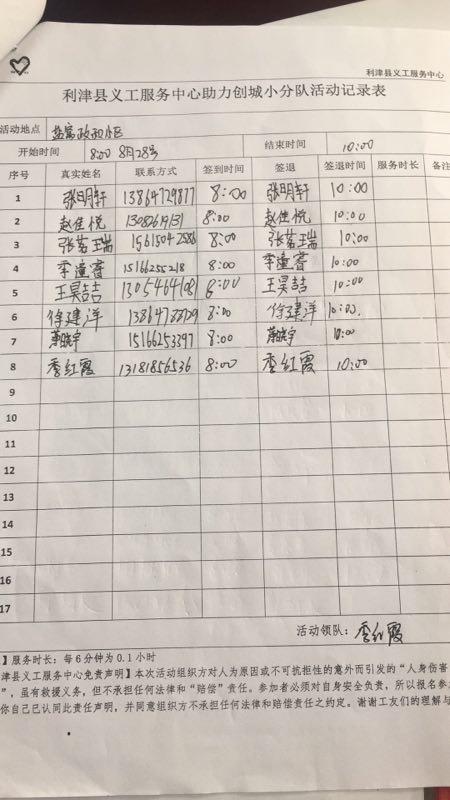 利津县义工服务中心
利津县义工服务中心助力创城小分队活动记录表
活动地点
开始时间 8:00 8月28号 结束时间 10:00
序号 真实姓名 联系方式 签到时间 签退 签退时间 服务时长 备注
1 张明轩 13864729877 8:00 张明轩 10:00
2 赵佳悦 8:00 赵佳悦 10:00
3 张茗瑞 15615042586 8:00 张茗瑞 10:00
4 李潼睿 15166255218 8:00 李潼睿 10:00
5 王昊喆 8:00 王昊喆 10:00
6 徐建洋 8:00 徐建洋 10:00
7 15166253397 8:00 10:00
8 季红霞 13181856536 8:00 季红霞 10:00
9
10
11
12
13
14
15
16
17
活动领队：季红霞
】服务时长：每6分钟为0.1小时
津县义工服务中心免责声明】本次活动组织方对人为原因或不可抗拒性的意外而引发的“人身伤害
”，虽有救援义务，但不承担任何法律和“赔偿”责任。参加者必须对自身安全负责，所以报名参
你自己已认同此责任声明，并同意组织方不承担任何法律和赔偿责任之约定。谢谢工友们的理解与